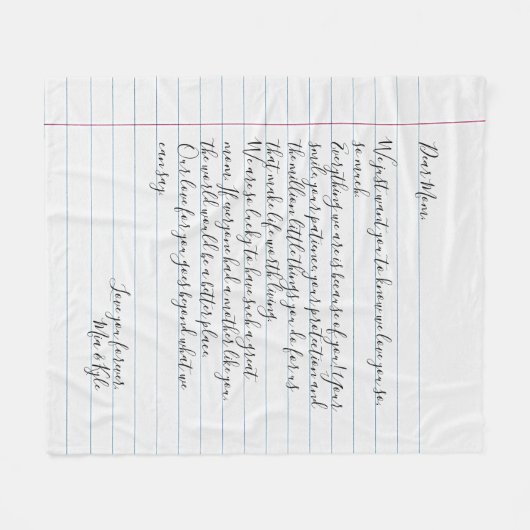 Dear Mom,
We just want you to know we love you so,
so much.
Everything we are is because of you! Your
smile, your patience, your protection and
the million little things you do for us
that make life worth living.
We are so lucky to have such a great
mom. If everyone had a mother like you,
the world would be a better place.
Our love for you goes beyond what we
can say.
Love you forever,
Mia & Kyle